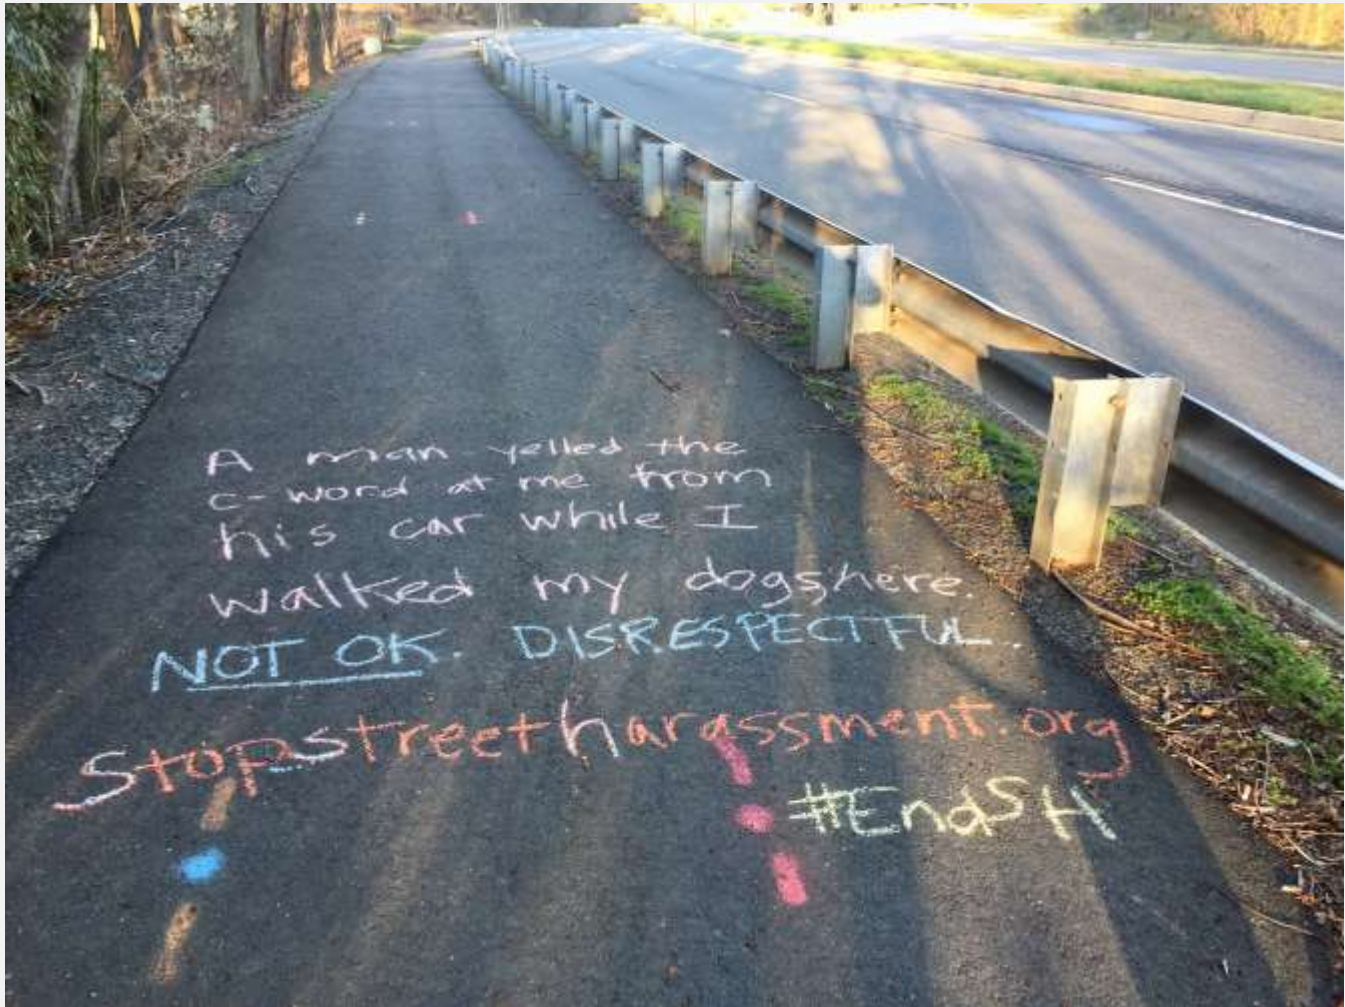 A man yelled the
c-word at me from
his car while I
walked my dogs here.
NOT OK. DISRESPECTFUL.
stopstreetharassment.org
#EndSH